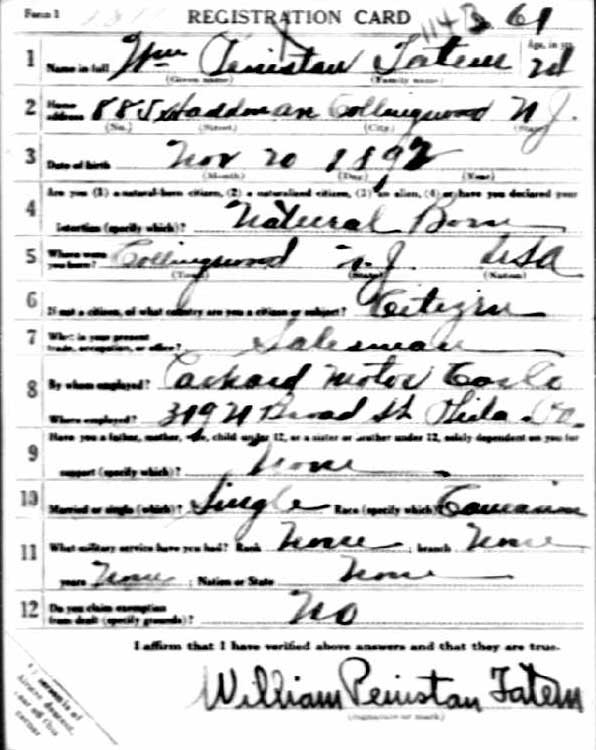 Form 1
REGISTRATION CARD 114 B 61
1 Name in full Wm Penistan Tatem Age, in yrs 24
(Given name) (Family name)
2 Home address 885 Haddon an Collingswood N J.
(No.) (Street) (City) (State)
3 Date of birth Nov 20 1892
(Month) (Day) (Year)
Are you (1) a natural-born citizen, (2) a naturalized citizen, (3) an alien, (4) or have you declared your
4 intention (specify which)? Natural Born
5 Where were you born? Collingswood N.J. USA
(Town) (State) (Nation)
6 If not a citizen, of what country are you a citizen or subject? Citizen
7 What is your present trade, occupation, or office? Salesman
8 By whom employed? Packard Motor Co
Where employed? 319 N Broad St Phila Pa.
9 Have you a father, mother, wife, child under 12, or a sister or brother under 12, solely dependent on you for
support (specify which)? None
10 Married or single (which)? Single Race (specify which)? Caucasian
11 What military service have you had? Rank None ; branch None
years None ; Nation or State None
12 Do you claim exemption from draft (specify grounds)? No
I affirm that I have verified above answers and that they are true.
William Penistan Tatem
(Signature or mark)
corner